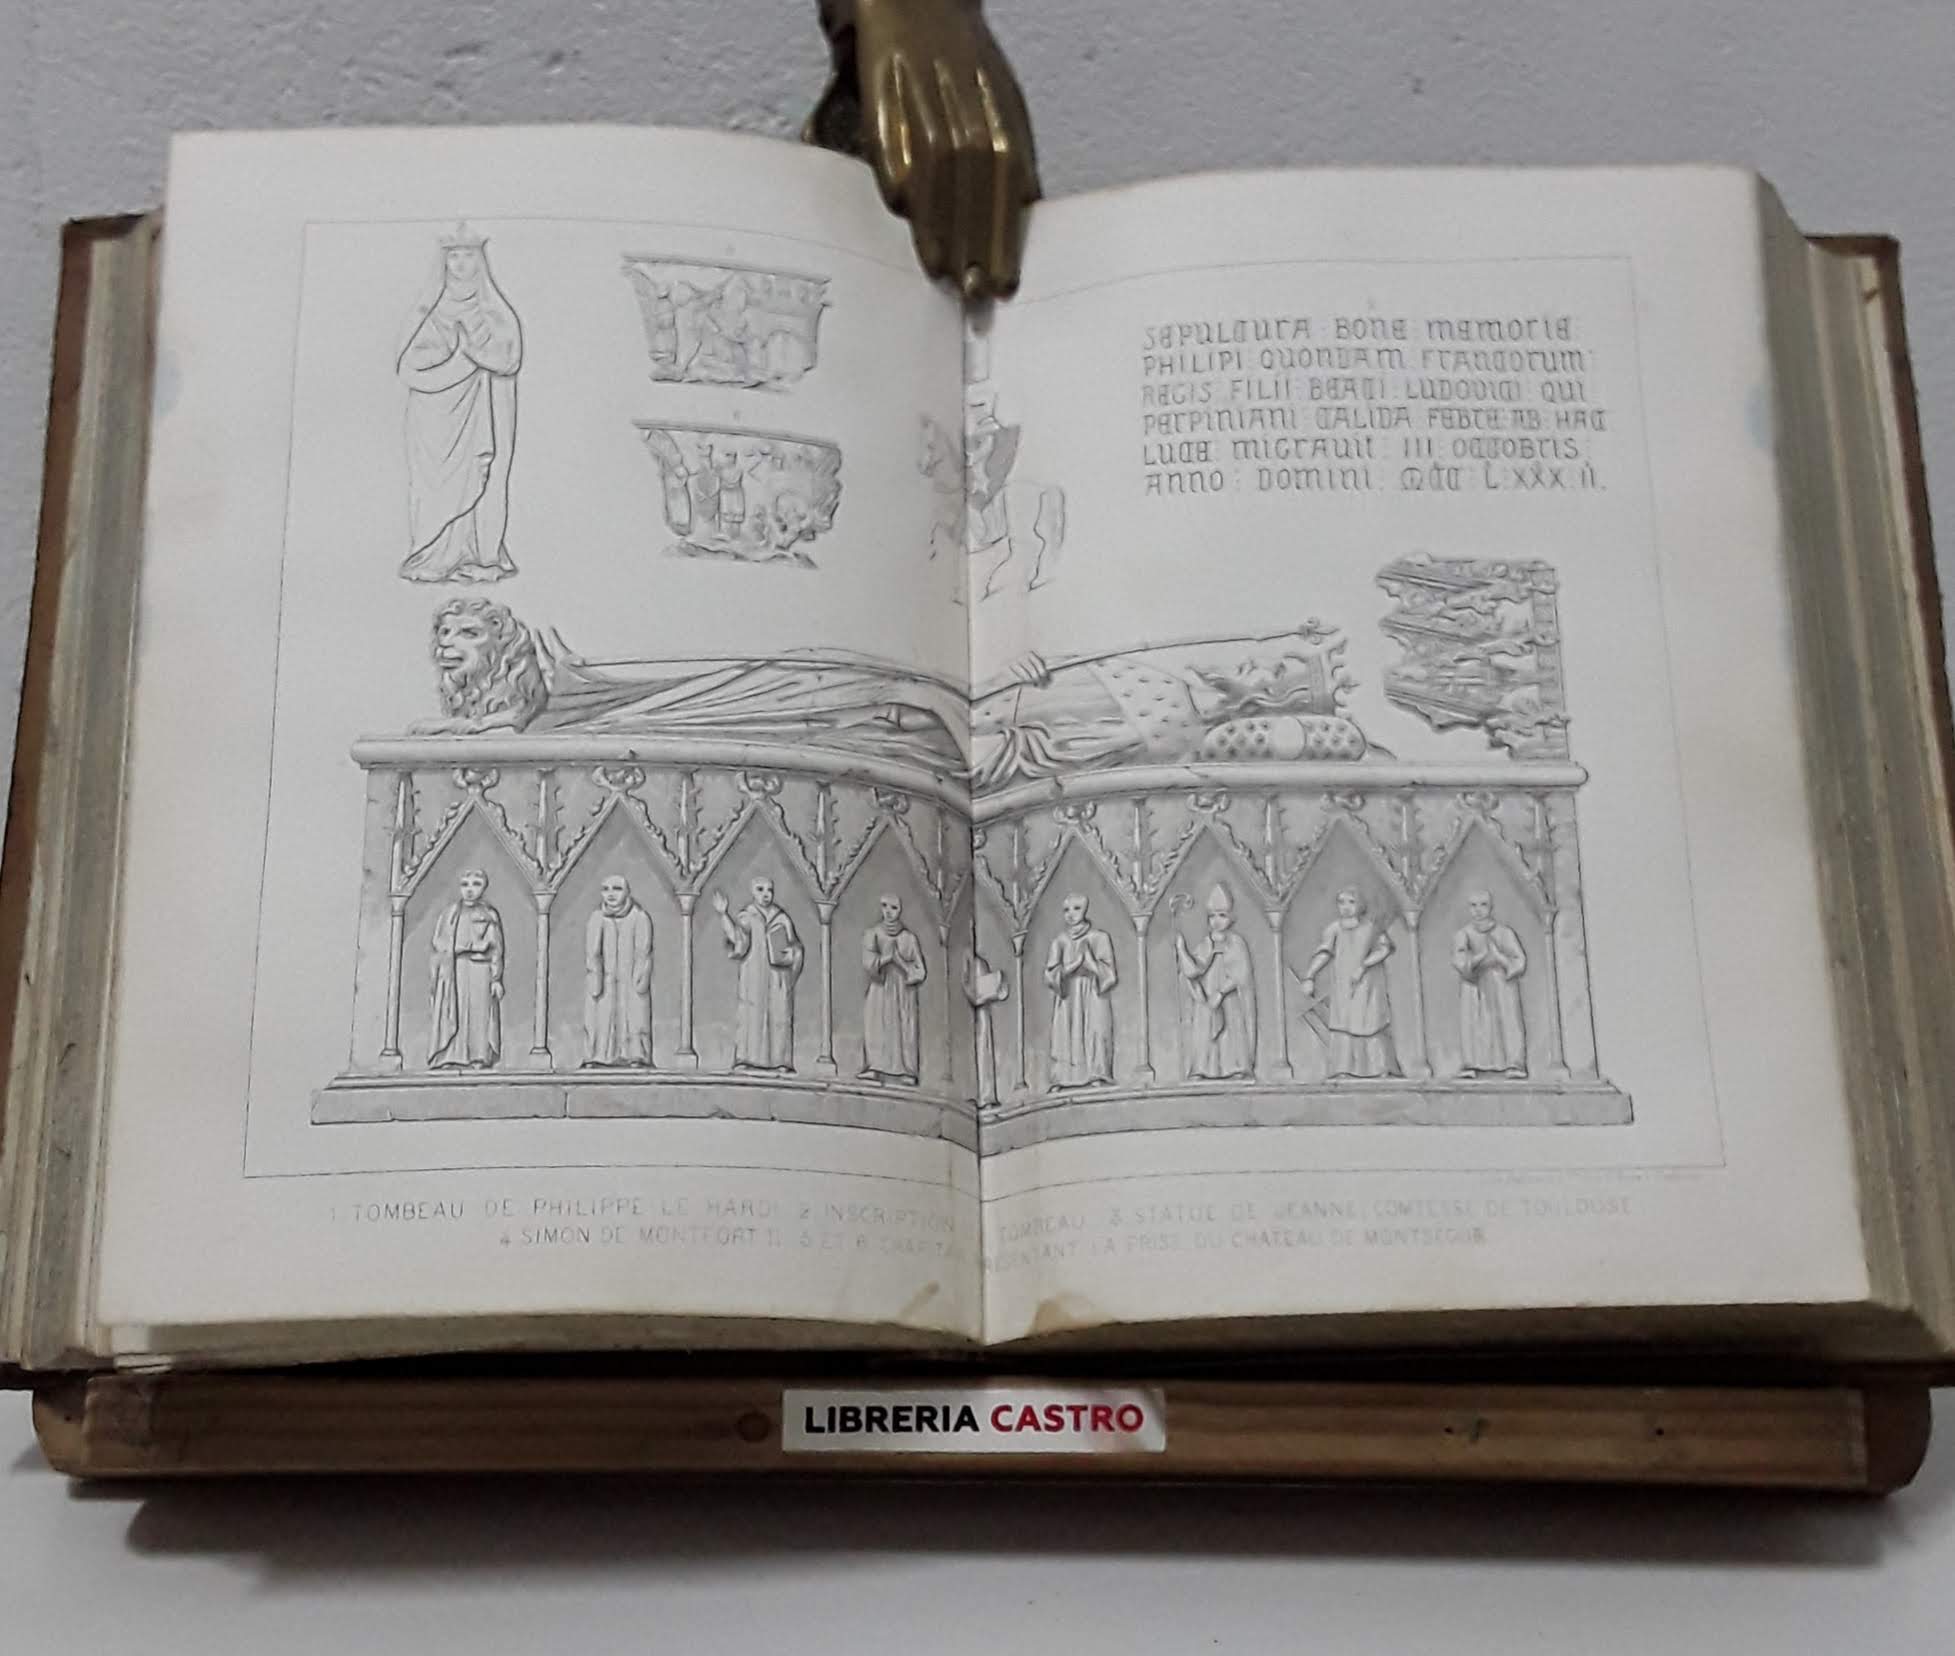 SEPULCURA : BONE : MEMORIE
PHILIPI : QUONDAM : FRANCORUM
REGIS : FILII : BEATI : LUDOVICI : QUI
PERPINIANI : CALIDA : FEBRE : AB : HAC
LUCE : MIGRAVIT : III : OCTOBRIS :
ANNO : DOMINI : MCC L:XXX:II.
1 TOMBEAU DE PHILIPPE LE HARDI 2 INSCRIPTION TOMBEAU 3 STATUE DE JEANNE, COMTESSE DE TOULOUSE
4 SIMON DE MONTFORT II 5 ET 6 CHAPIT RESENTANT LA PRISE DU CHATEAU DE MONTSEGUR
LIBRERIA CASTRO